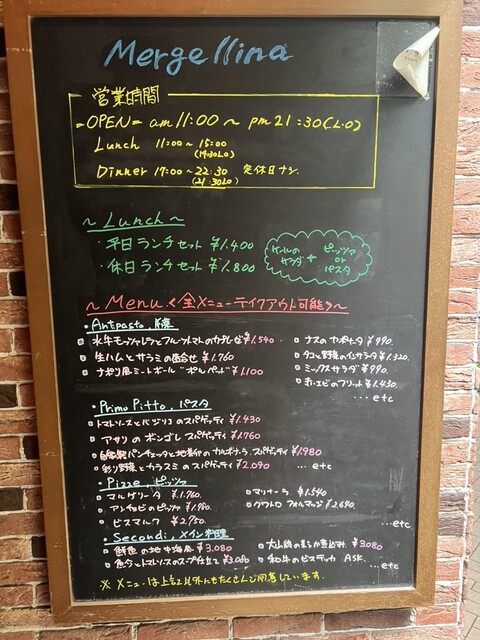 Mergellina
営業時間
=OPEN= am11:00 ~ pm21:30(L.O)
Lunch 11:00~15:00
(14:30LO)
Dinner 17:00~22:30 定休日ナシ.
(21:30LO)
~Lunch~
・平日ランチセット ¥1.400
・休日ランチセット ¥1.800
ケールのサラダ + ピッツァ or パスタ
~Menu<全メニューテイクアウト可能>~
・Antpasto.前菜
水牛モッツァレラとフルーツトマトのカプレーゼ ¥1.540
生ハムとサラミの盛合せ ¥1.760
ナポリ風ミートボール "ポルペッテ" ¥1.100
ナスの ¥990.
タコと野菜のインサラータ ¥1.320.
ミックスサラダ ¥990.
赤エビのフリット ¥1.430.
...etc
・Primo Pitto.パスタ
トマトソースとバジリコのスパゲッティ ¥1.430
アサリのボンゴレ スパゲッティ ¥1.760
自家製パンチェッタと地養卵のカルボナーラ.スパゲッティ ¥1.980
彩り野菜とカラスミのスパゲッティ ¥2.090 ... etc
・Pizze.ピッツァ
マルゲリータ ¥1.760.
アンチョビのピッツァ ¥1.980.
ビスマルク ¥2.750.
マリナーラ ¥1.540
クワトロ フォルマッジ ¥2.640.
...etc
・Secondi.メイン料理
鮮魚の地中海風 ¥3.080
¥3.080
和牛のビステッカ ASK.
...etc
※メニューは上記以外にもたくさんご用意しています.